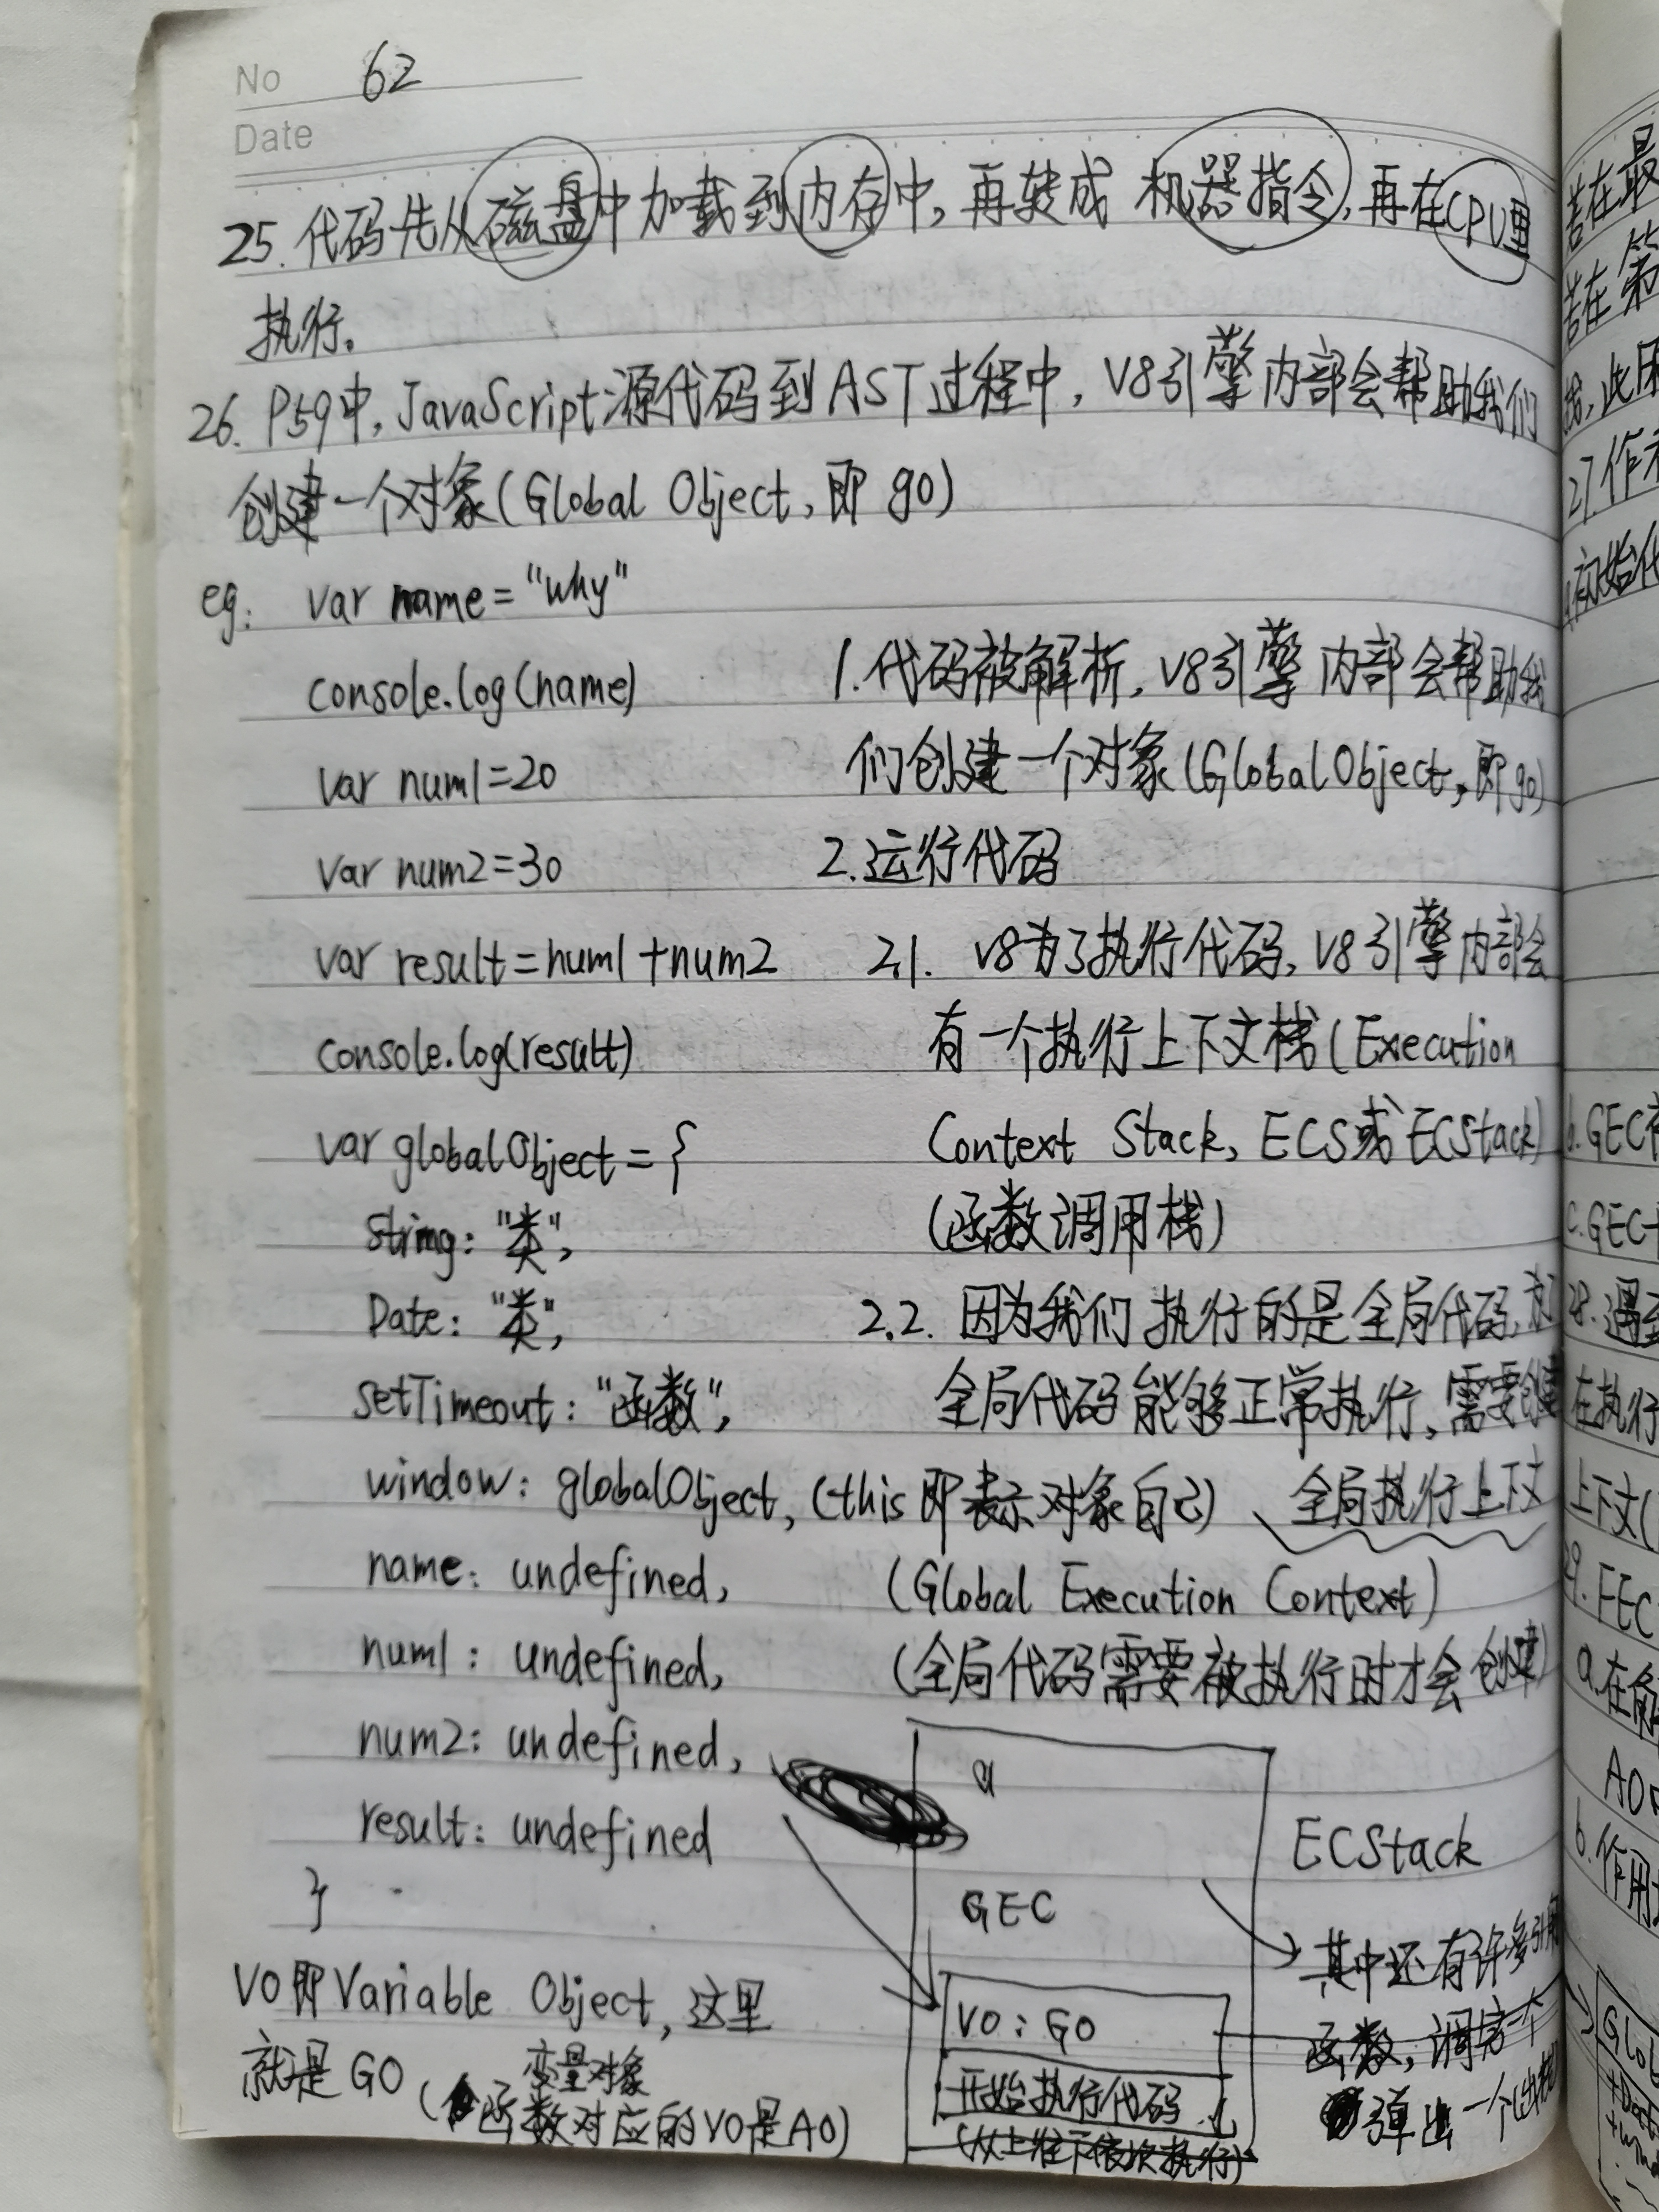 No 62
Date
25. 代码先从磁盘中加载到内存中, 再转成 机器指令, 再在CPU里
执行。
26. P59中, JavaScript源代码到AST过程中, V8引擎内部会帮助我们
创建一个对象(Global Object, 即 go)
eg: var name = "why"
console.log(name)
var num1=20
var num2=30
var result=num1+num2
console.log(result)
var globalObject = {
String: "类",
Date: "类",
setTimeout: "函数",
window: globalObject, (this即表示对象自己)
name: undefined,
num1: undefined,
num2: undefined,
result: undefined
}
VO即Variable Object, 这里
就是GO
变量对象
函数对应的VO是AO)
1. 代码被解析, V8引擎内部会帮助我
们创建一个对象(GlobalObject, 即go)
2. 运行代码
2.1. V8为了执行代码, V8引擎内部会
有一个执行上下文栈(Execution
Context Stack, ECS或ECStack)
(函数调用栈)
2.2. 因为我们执行的是全局代码,
全局代码能够正常执行, 需要创建
、全局执行上下文
(Global Execution Context)
(全局代码需要被执行时才会创建)
GEC
VO: GO
开始执行代码
(从上往下依次执行)
ECStack
其中还有许多引用
函数, 调完一个
弹出一个
若在最
若在第
此用
27.作
初始化
b.GEC
c.GEC
28.遇到
在执行
上下文(
29. FEC
a.在
AO
b.作用